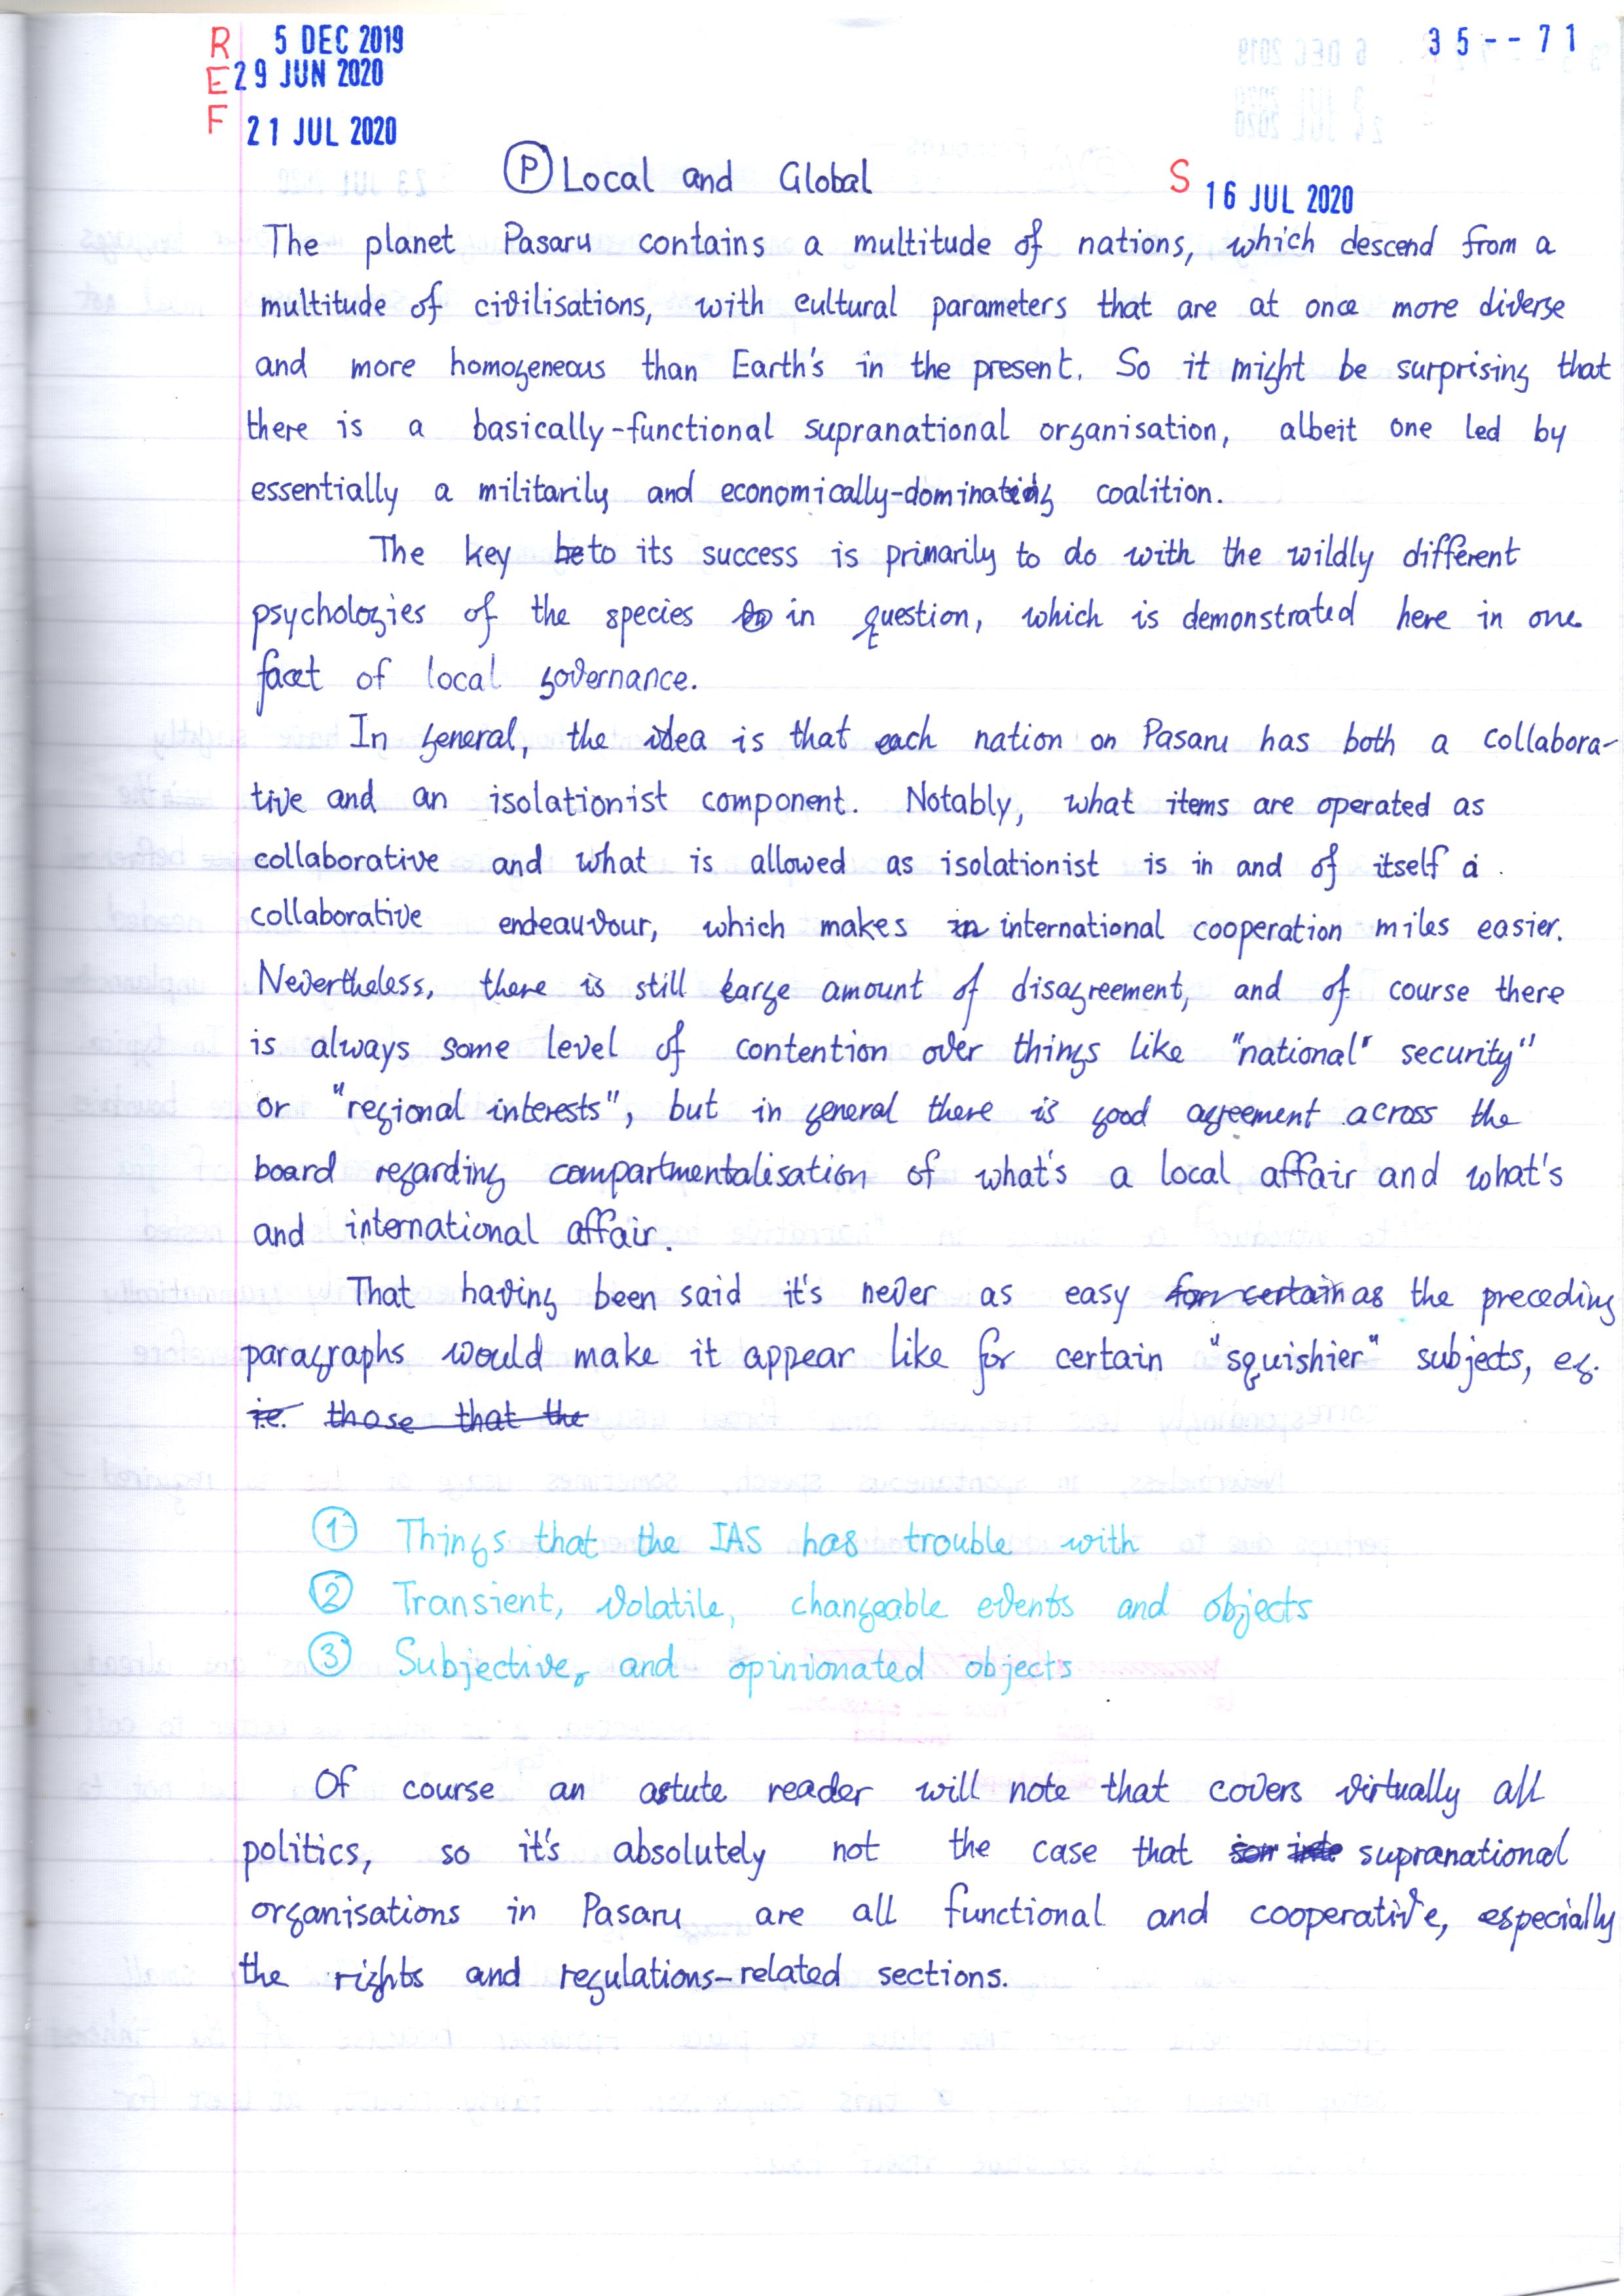 R 5 DEC 2019 35--71
E 29 JUN 2020
F 21 JUL 2020
Ⓟ Local and Global S 16 JUL 2020
The planet Pasaru contains a multitude of nations, which descend from a
multitude of civilisations, with cultural parameters that are at once more diverse
and more homogeneous than Earth's in the present. So it might be surprising that
there is a basically-functional supranational organisation, albeit one led by
essentially a militarily and economically-dominating coalition.
The key to its success is primarily to do with the wildly different
psychologies of the species in question, which is demonstrated here in one
facet of local governance.
In general, the idea is that each nation on Pasaru has both a collabora-
tive and an isolationist component. Notably, what items are operated as
collaborative and what is allowed as isolationist is in and of itself a
collaborative endeauvour, which makes international cooperation miles easier.
Nevertheless, there is still large amount of disagreement, and of course there
is always some level of contention over things like "national" security"
or "regional interests", but in general there is good agreement across the
board regarding compartmentalisation of what's a local affair and what's
and international affair.
That having been said it's never as easy for certain as the preceding
paragraphs would make it appear like for certain "squishier" subjects, eg.
ie. those that the
① Things that the IAS has trouble with
② Transient, volatile, changeable events and objects
③ Subjective, and opinionated objects
Of course an astute reader will note that covers virtually all
politics, so it's absolutely not the case that supranational
organisations in Pasaru are all functional and cooperative, especially
the rights and regulations-related sections.